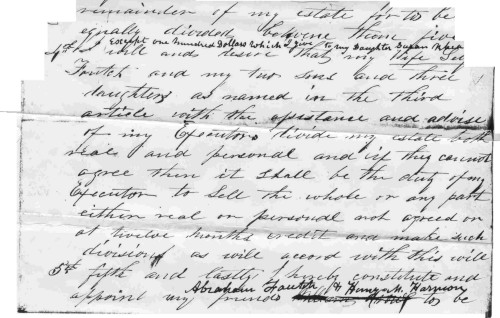 remainder of my estate for to be
equally divided between those five
Except one Hundred Dollars which I give to my Daughter Susan
4th I will and desire that my Wife
and my two sons and three
daughters as named in the third
article with the assistance and advise
of my Executors divide my estate both
real and personal and if they cannot
agree then it shall be the duty of my
Executor to Sell the whole or any part
either real or personal not agreed on
at twelve months credit and make such
division as will accord with this will
5th fifth and lastly I hereby constitute and
Abraham & Henry M. Harrison
appoint my friends to be